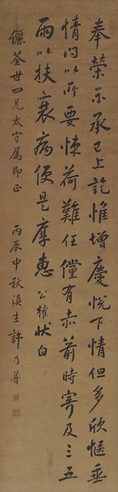 奉榮示承已上訖惟增慶悅下情但多欣愜垂
情問以所要悚荷難任儻有赤箭時寄及三五
兩以扶衰病便是厚惠 公權狀白
篆荃世四兄太守屬即正 丙辰中秋滇生許乃普